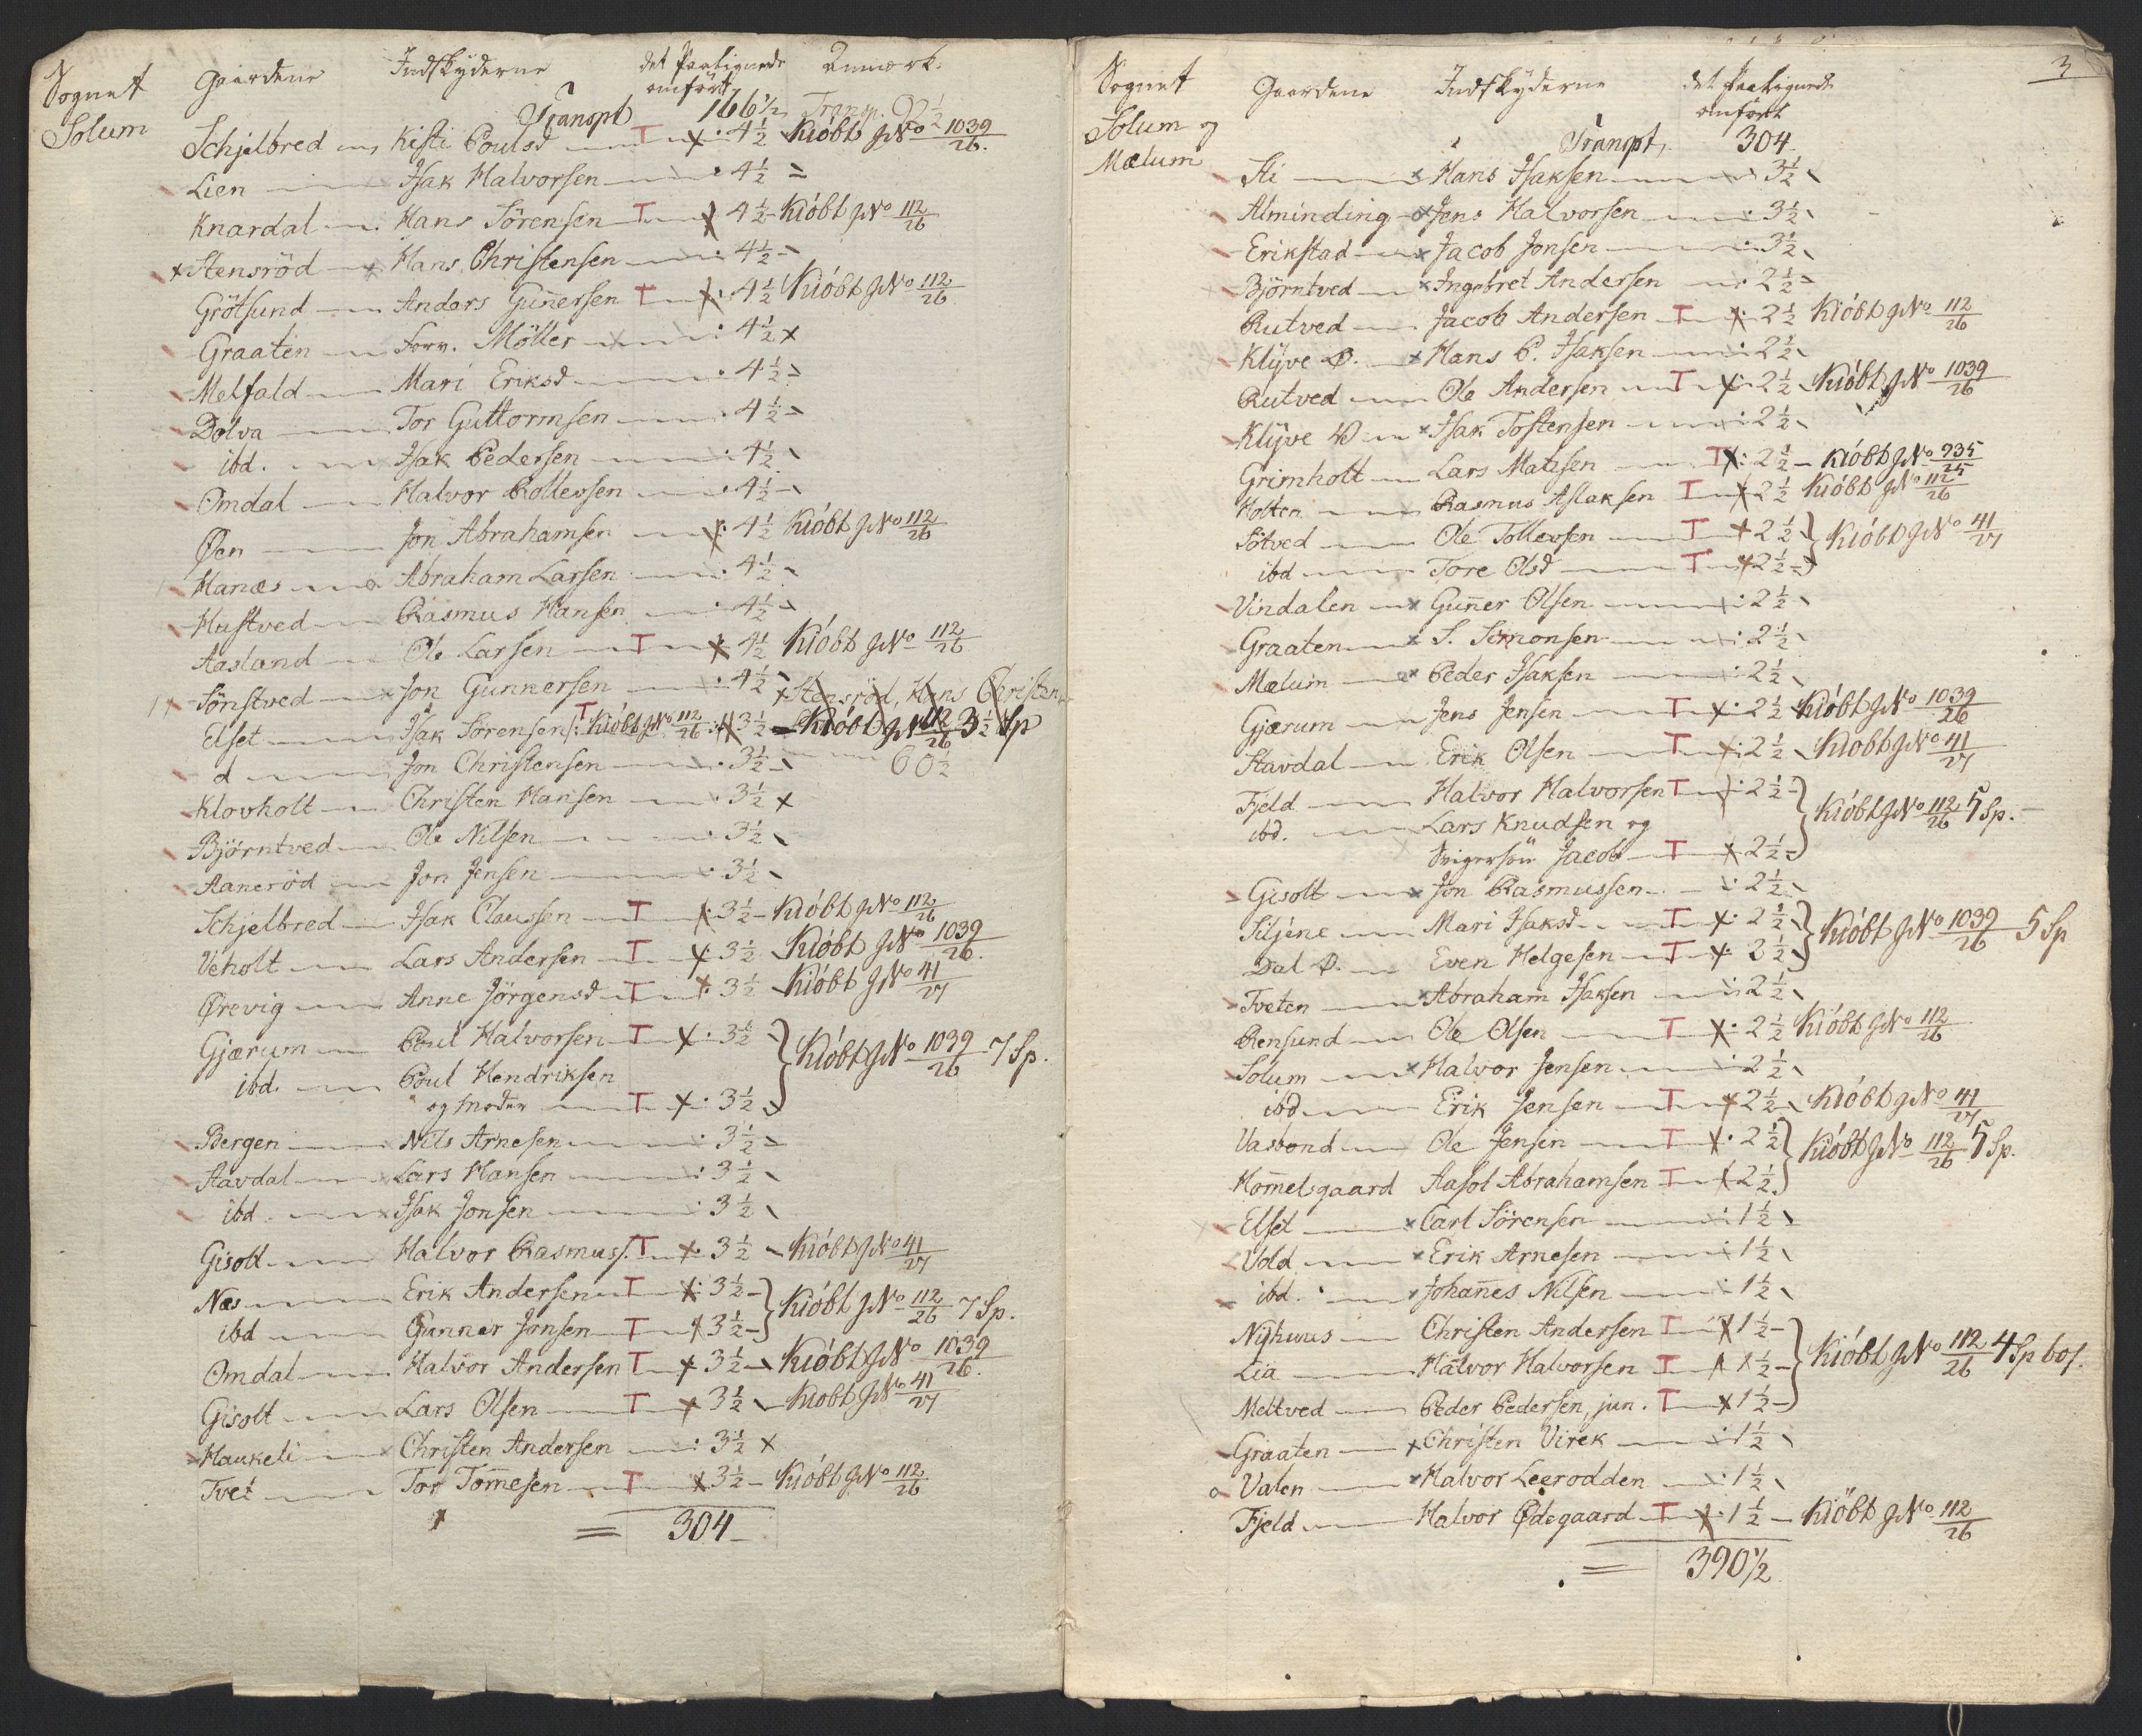 Sognet Gaardene Indskyderne det Paalignede Anmærk.
omført
Solum Transpt 166½ Transp. 92½
Schjelbred Kisti Poulsd T 4½ Kiöbt J No 1039/26.
Lien Isak Halvorsen 4½
Knardal Hans Sörensen T 4½ Kiöbt J No 112/26
Stensröd Hans Christensen 4½
Grötsund Anders Guñersen T 4½ Kiöbt J No 112/26
Graaten Forv. Möller 4½ x
Melfald Mari Eriksd 4½
Dolva Tor Guttormsen 4½
ibd. Isak Pedersen 4½
Omdal Halvor Rollefsen 4½
Øen Jon Abrahamsen 4½ Kiöbt J No 112/26
Hanæs Abraham Larsen 4½
Hustved Rasmus Hansen 4½
Aasland Ole Larsen T 4½ Kiöbt J No 112/26
Sönstved Jon Gunnersen 4½ x Stensröd, Hans Christens.
Elset Isak Sörensen T Kiöbt J No 112/26 3½ Kiöbt J No 112/26 3½ Sp
d Jon Christensen 3½ 60½
Klovholt Christen Hansen 3½ x
Björntved Ole Nilsen 3½
Aaneröd Jon Jensen 3½
Schjelbred Isak Claussen T 3½ Kiöbt J No 112/26
Veholt Lars Andersen T 3½ Kiöbt J No 1039/26.
Ørevig Anne Jörgensd T 3½ Kiöbt J No 41/27
Gjærum Poul Halvorsen T 3½
ibd. Poul Hendriksen Kiöbt J No 1039/26 7 Sp.
og Moder T 3½
Bergen Nils Arnesen 3½
Stavdal Lars Hansen 3½
ibd. Isak Jonsen 3½
Gisolt Halvor Rasmuss. T 3½ Kiöbt J No 41/27
Næs Erik Andersen T 3½
ibd Gunner Jonsen T 3½ Kiöbt J No 112/26 7 Sp.
Omdal Halvor Andersen T 3½ Kiöbt J No 1039/26.
Gisolt Lars Olsen T 3½ Kiöbt J No 41/27
Haukeli Christen Andersen 3½ x
Tvet Tor Tom̄esen T 3½ Kiöbt J No 112/26
= 304
3
Sognet Gaardene Indskyderne det Paalignede
omført
Solum og Transpt. 304
Mælum
Sti Hans Isaksen 3½
Alminding Jens Halvorsen 3½
Erikstad Jacob Jonsen 3½
Björntved Ingebret Andersen 2½
Rutved Jacob Andersen T 2½ Kiöbt J No 112/26
Klÿve Ø. Hans P. Isaksen 2½
Rutved Ole Andersen T 2½ Kiöbt J No 1039/26
Klÿve V Isak Tostensen 2½
Grimholt Lars Matisen T 2½ Kiöbt J No 935/25
Holten Rasmus Aslaksen T 2½ Kiöbt J No 112/26
Sötved Ole Tollevsen T 2½
ibd Tore Olsd T 2½ Kiöbt J No 41/27
Vindalen Guñer Olsen 2½
Graaten S. Simonsen 2½
Mælum Peder Isaksen 2½
Gjærum Jens Jensen T 2½ Kiöbt J No 1039/26
Stavdal Erik Olsen T 2½ Kiöbt J No 41/27
Fjeld Halvor Halvorsen T 2½
ibd. Lars Knudsen og Kiöbt J No 112/26 5 Sp.
Svigersön Jacob T 2½
Gisolt Jon Rasmussen 2½
Siljene Mari Isaksd T 2½
Dal Ø. Even Helgesen T 2½ Kiöbt J No 1039/26 5 Sp
Tveten Abraham Isaksen 2½
Rensund Ole Olsen T 2½ Kiöbt J No 112/26
Solum Halvor Jensen 2½
ibd Erik Jensen T 2½ Kiöbt J No 41/27
Vasbond Ole Jensen T 2½
Hom̄elsgaard Aasol Abrahamsen T 2½ Kiöbt J No 112/26 5 Sp.
Elset Carl Sörensen 1½
Vold Erik Arnesen 1½
ibd. Johañes Nilsen 1½
Nÿhuus Christen Andersen T 1½
Lia Halvor Halvorsen T 1½ Kiöbt J No 112/26 4 Sp 60 s.
Meltved Peder Pedersen, jun. T 1½
Graaten Christen Virek 1½
Valen Halvor Leerodden 1½
Fjeld Halvor Ødegaard T 1½ Kiöbt J No 112/26
= 390½